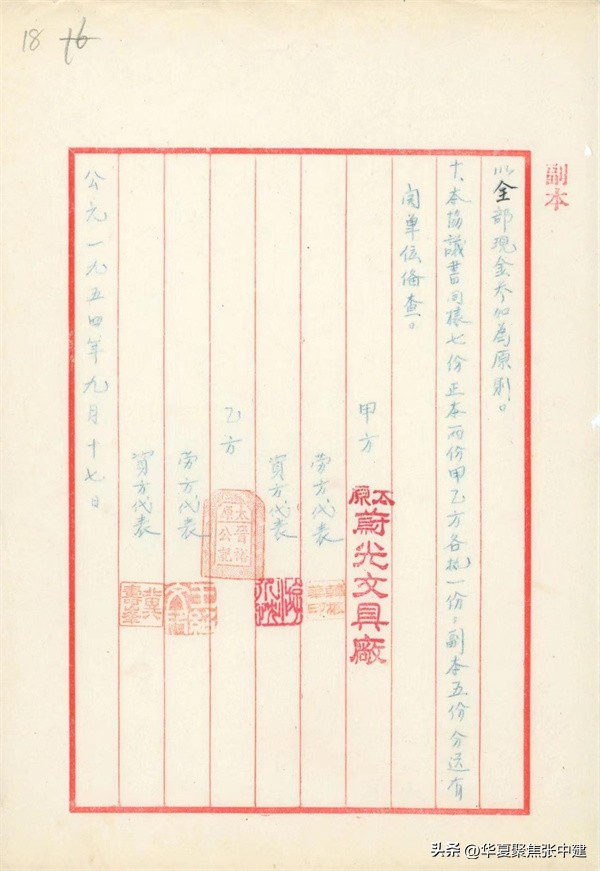 18 16
副本
以全部现金参加為原則。
十、本協議書同樣七份正本两份甲乙方各执一份，副本五份分送有
関单位俻查。
甲方
太原蔚光文具廠
劳方代表
資方代表
乙方
太原晋裕公記
劳方代表
資方代表 冀寿峯
公元一九五四年九月十七日
头条 @华夏聚焦张中建